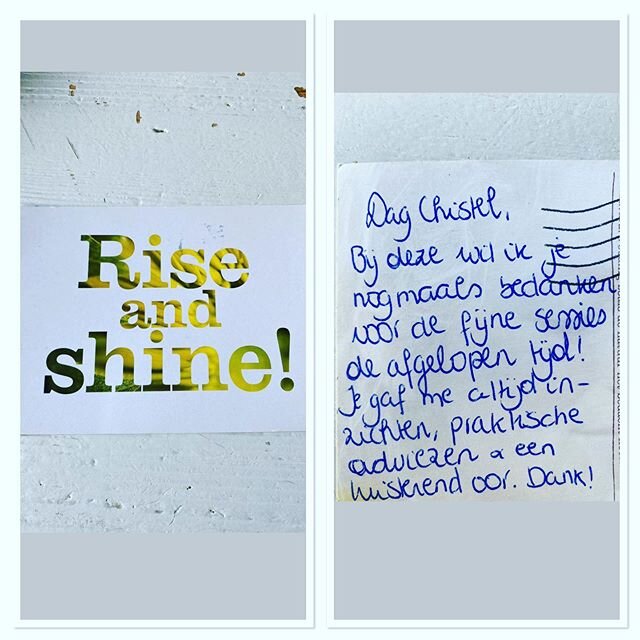 Rise
and
shine!
Dag Christel,
Bij deze wil ik je
nogmaals bedanken
voor de fijne sessies
de afgelopen tijd!
Je gaf me altijd in-
zichten, praktische
adviezen & een
luisterend oor. Dank!